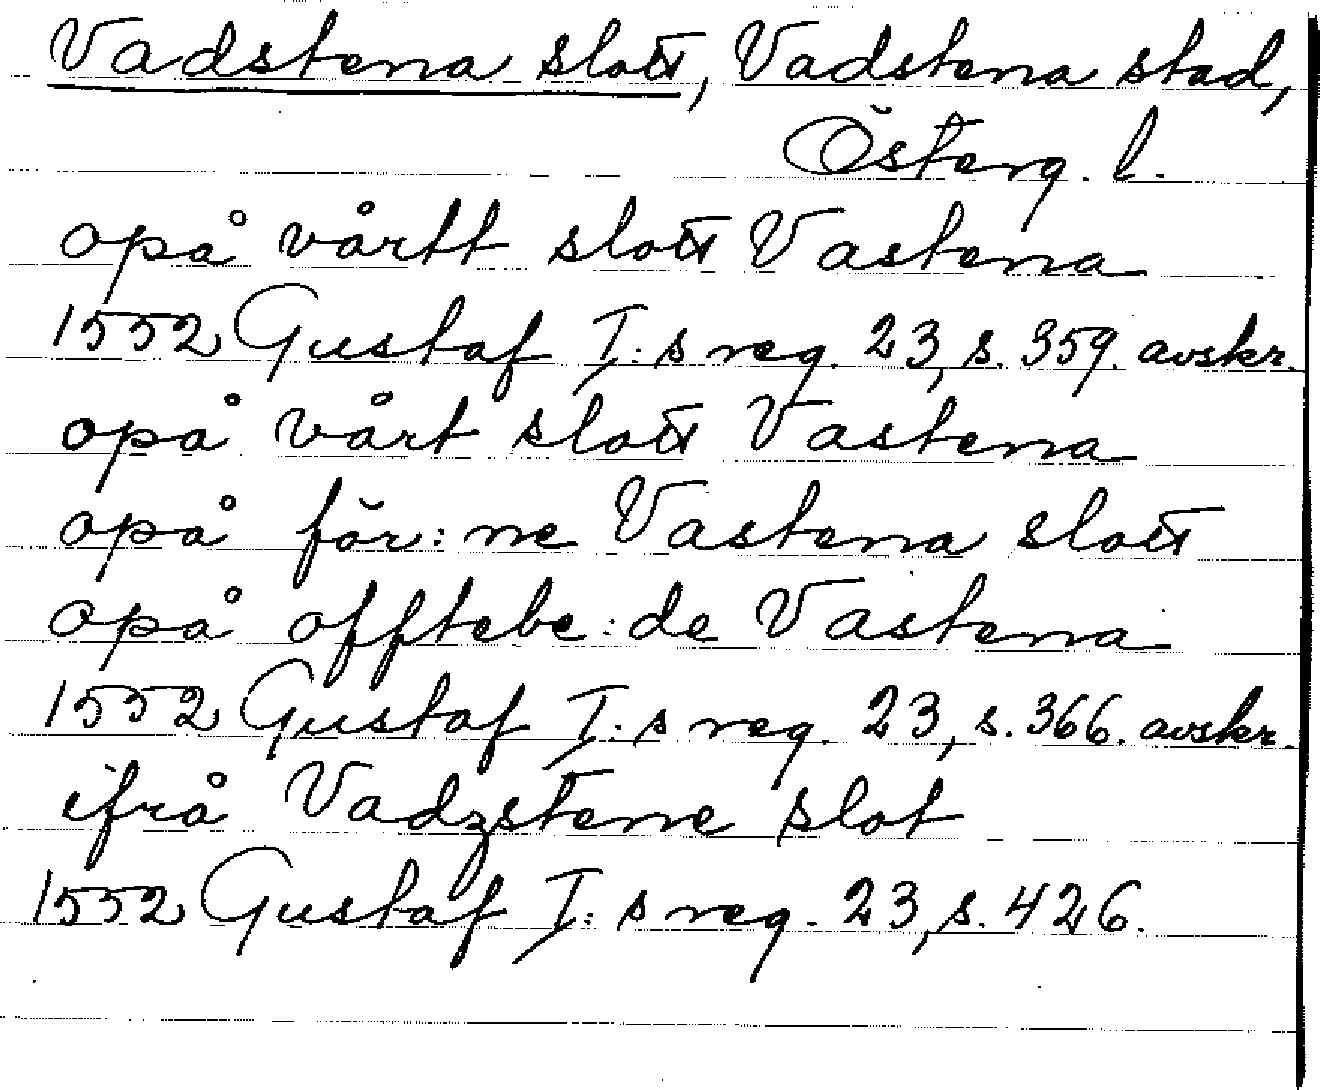 Vadstena slott, Vadstena stad,
Österg. l.
opå vårtt slott Vastena
1552 Gustaf I:s reg. 23, s. 359. avskr.
opå vårt slott Vastena
opå för:ne Vastena slott
opå offtebe:de Vastena
1552 Gustaf I:s reg. 23, s. 366. avskr.
ifrå Vadzstene slot
1552 Gustaf I:s reg. 23, s. 426.